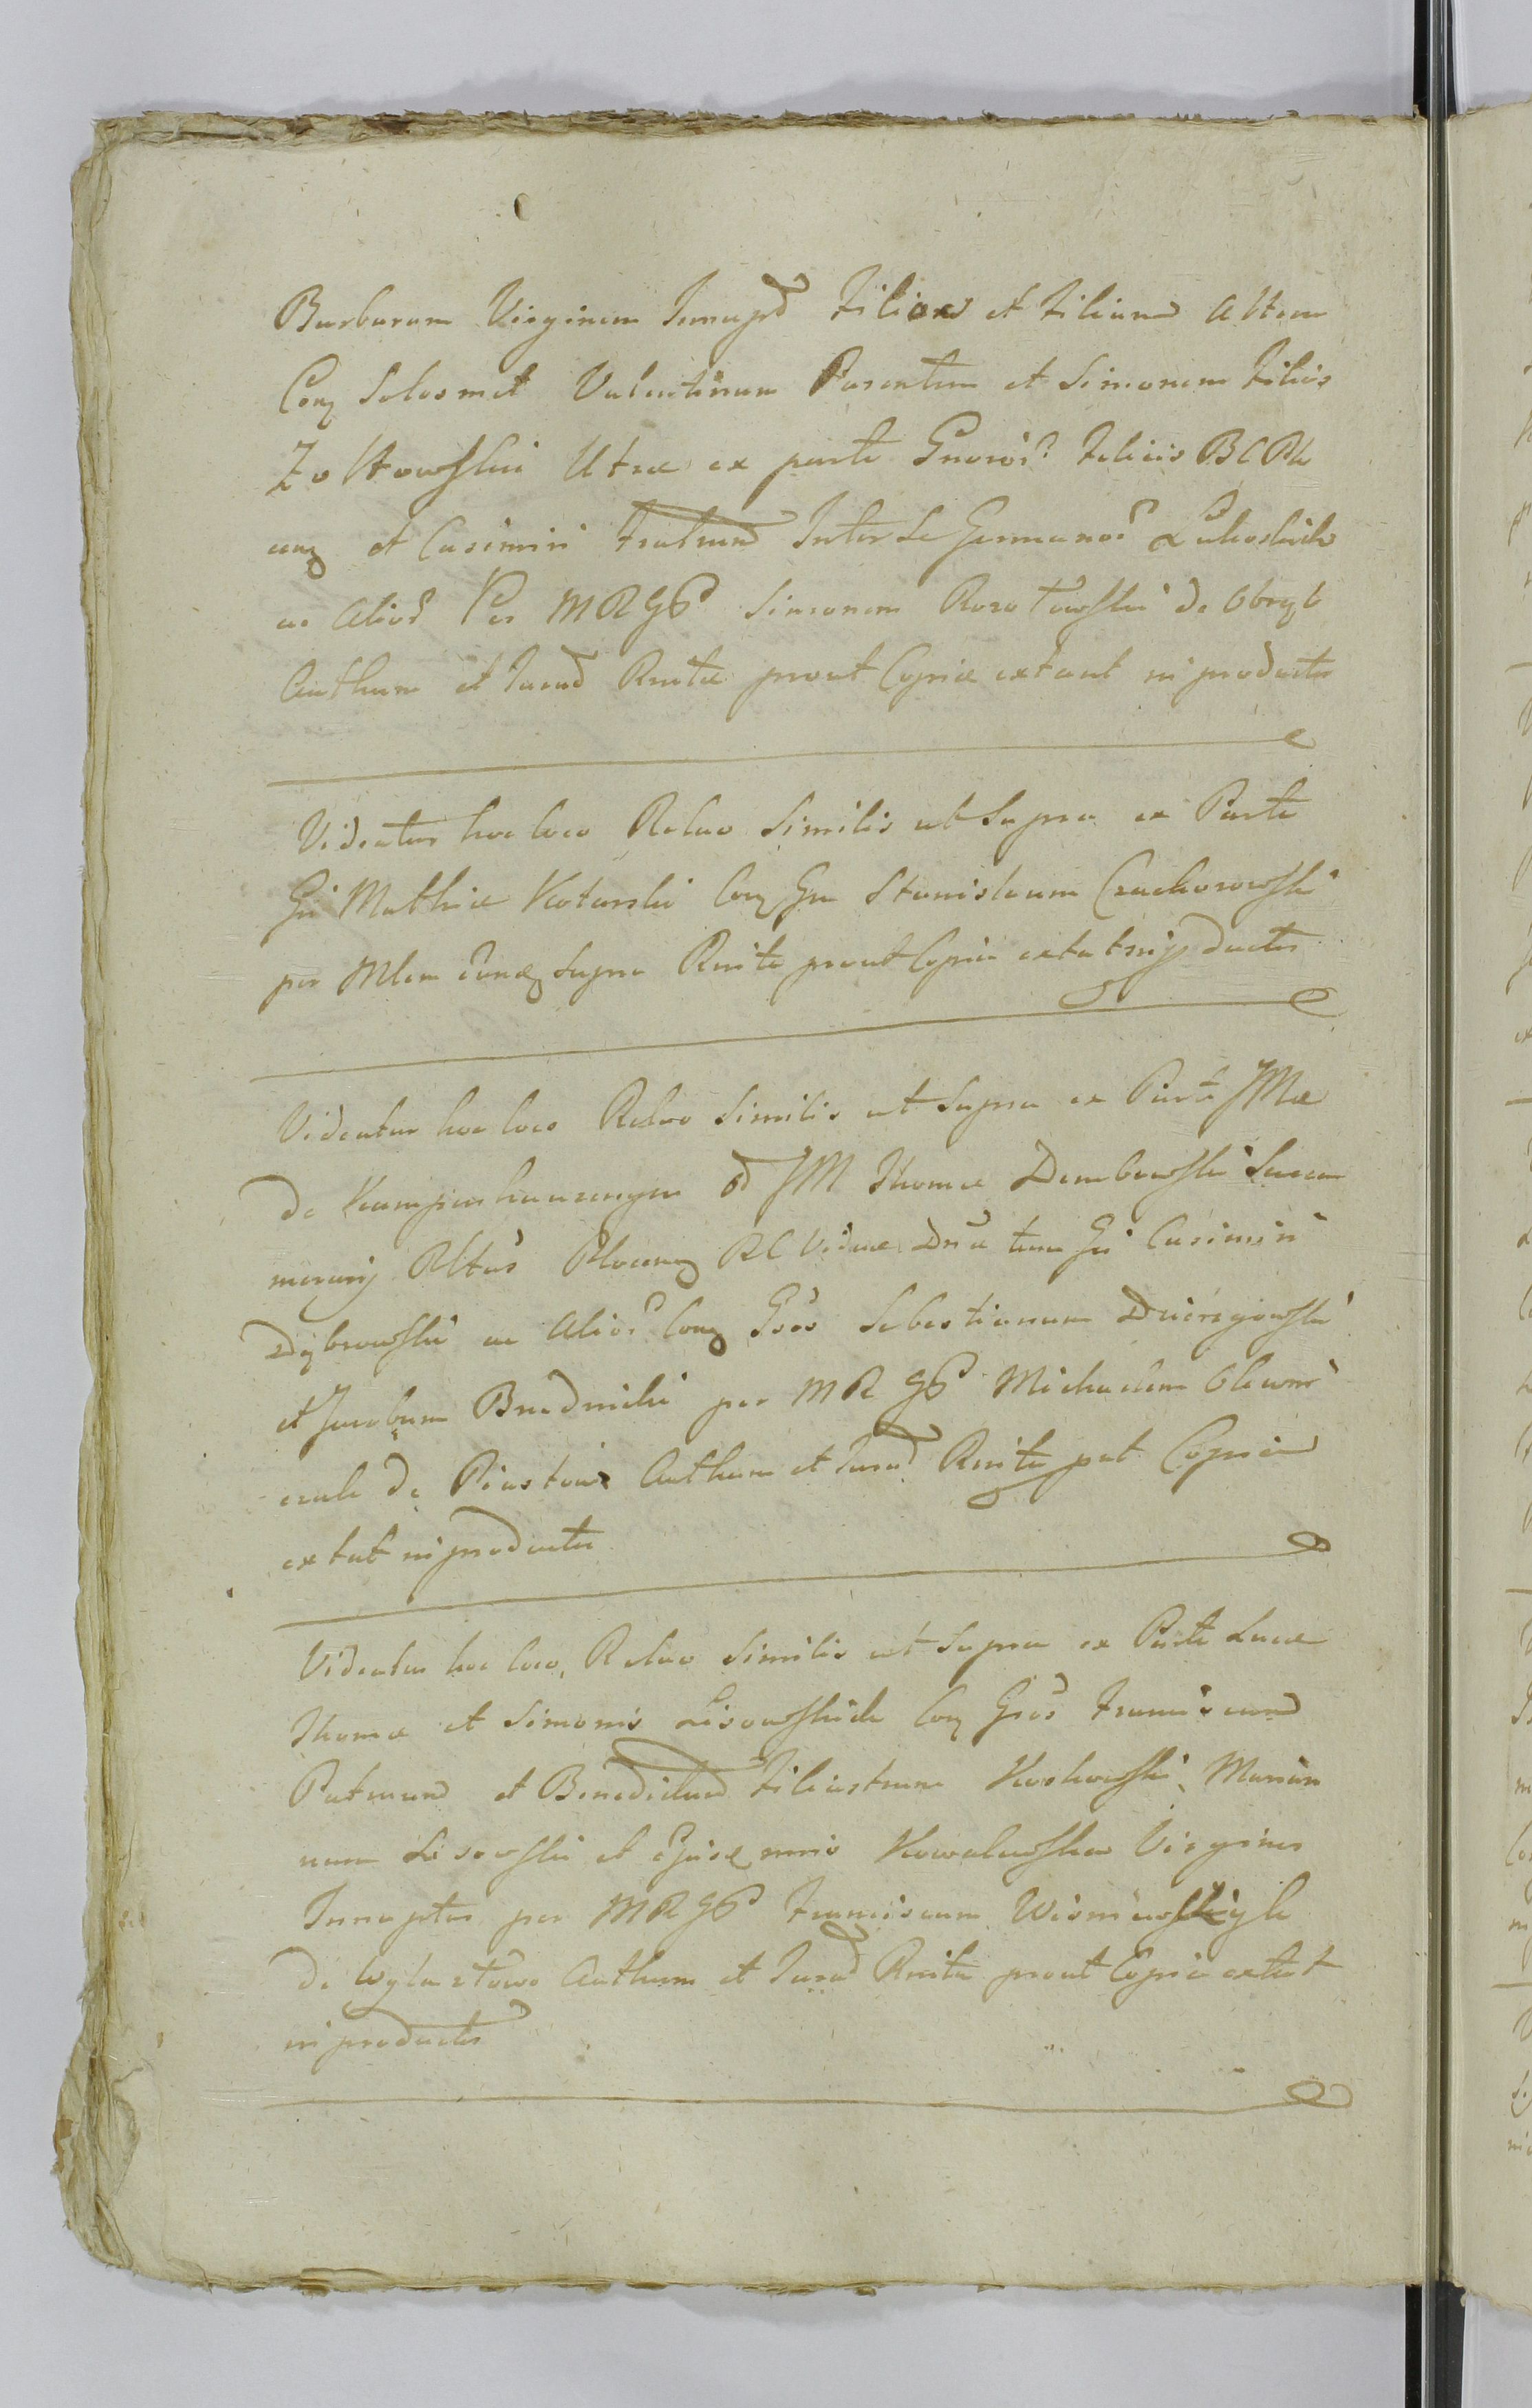 Barbaram Virginem Innupt Filias et Filium Altem
Conq Solosmet Valentinum Parentem et Simonem Filios
Zołtowskie Utræ ex parte Gnosor Felicis BCPlo
cenq et Casimiri Fratrum Inter Se Germanor Łukoskich
ac Alior Per MRGP Simonem Rozotowski de Obręb
Authum et Jurad Rnitæ prout Copiæ extant in productis
Videatur hoc loco Relao Similis ut Supra ex Parte
Gi Mathiæ Kotarski Conq Gm Stanislaum Czachorowski
per Mlem eundq Supra Rnita prout Copia extat in pductis
Videatur hoc loco Relao Similis ut Supra ex Parte JMæ
de Kampenhauzengin od JM Thomæ Dembowski Succa
merarij Pltus Plocenq RC Viduæ Dnæ tum Gi Casimiri
Dębrowski ac Alior Conq Gsos Sebestianum Dzierzgowski
et Jacobum Brudnicki per MR GP Michaelem Olewni
czak de Piastow Authum et Jurad Rnita put Copia
extat in productis
Videatur hoc loco Relao Similis ut Supra ex Parte Lucæ
Thomæ et Simonis Lisowskich Conq Gsos Franciscum
Patruum et Benedictum Filiastrum Koskowski, Marian
num Lisowski et ejus mris Kowalewskas Virgines
Innuptas per MRGP Franciscum Wisniewski
de Wylaztowo Authum et Jurad Rnita prout Copia extat
in productis